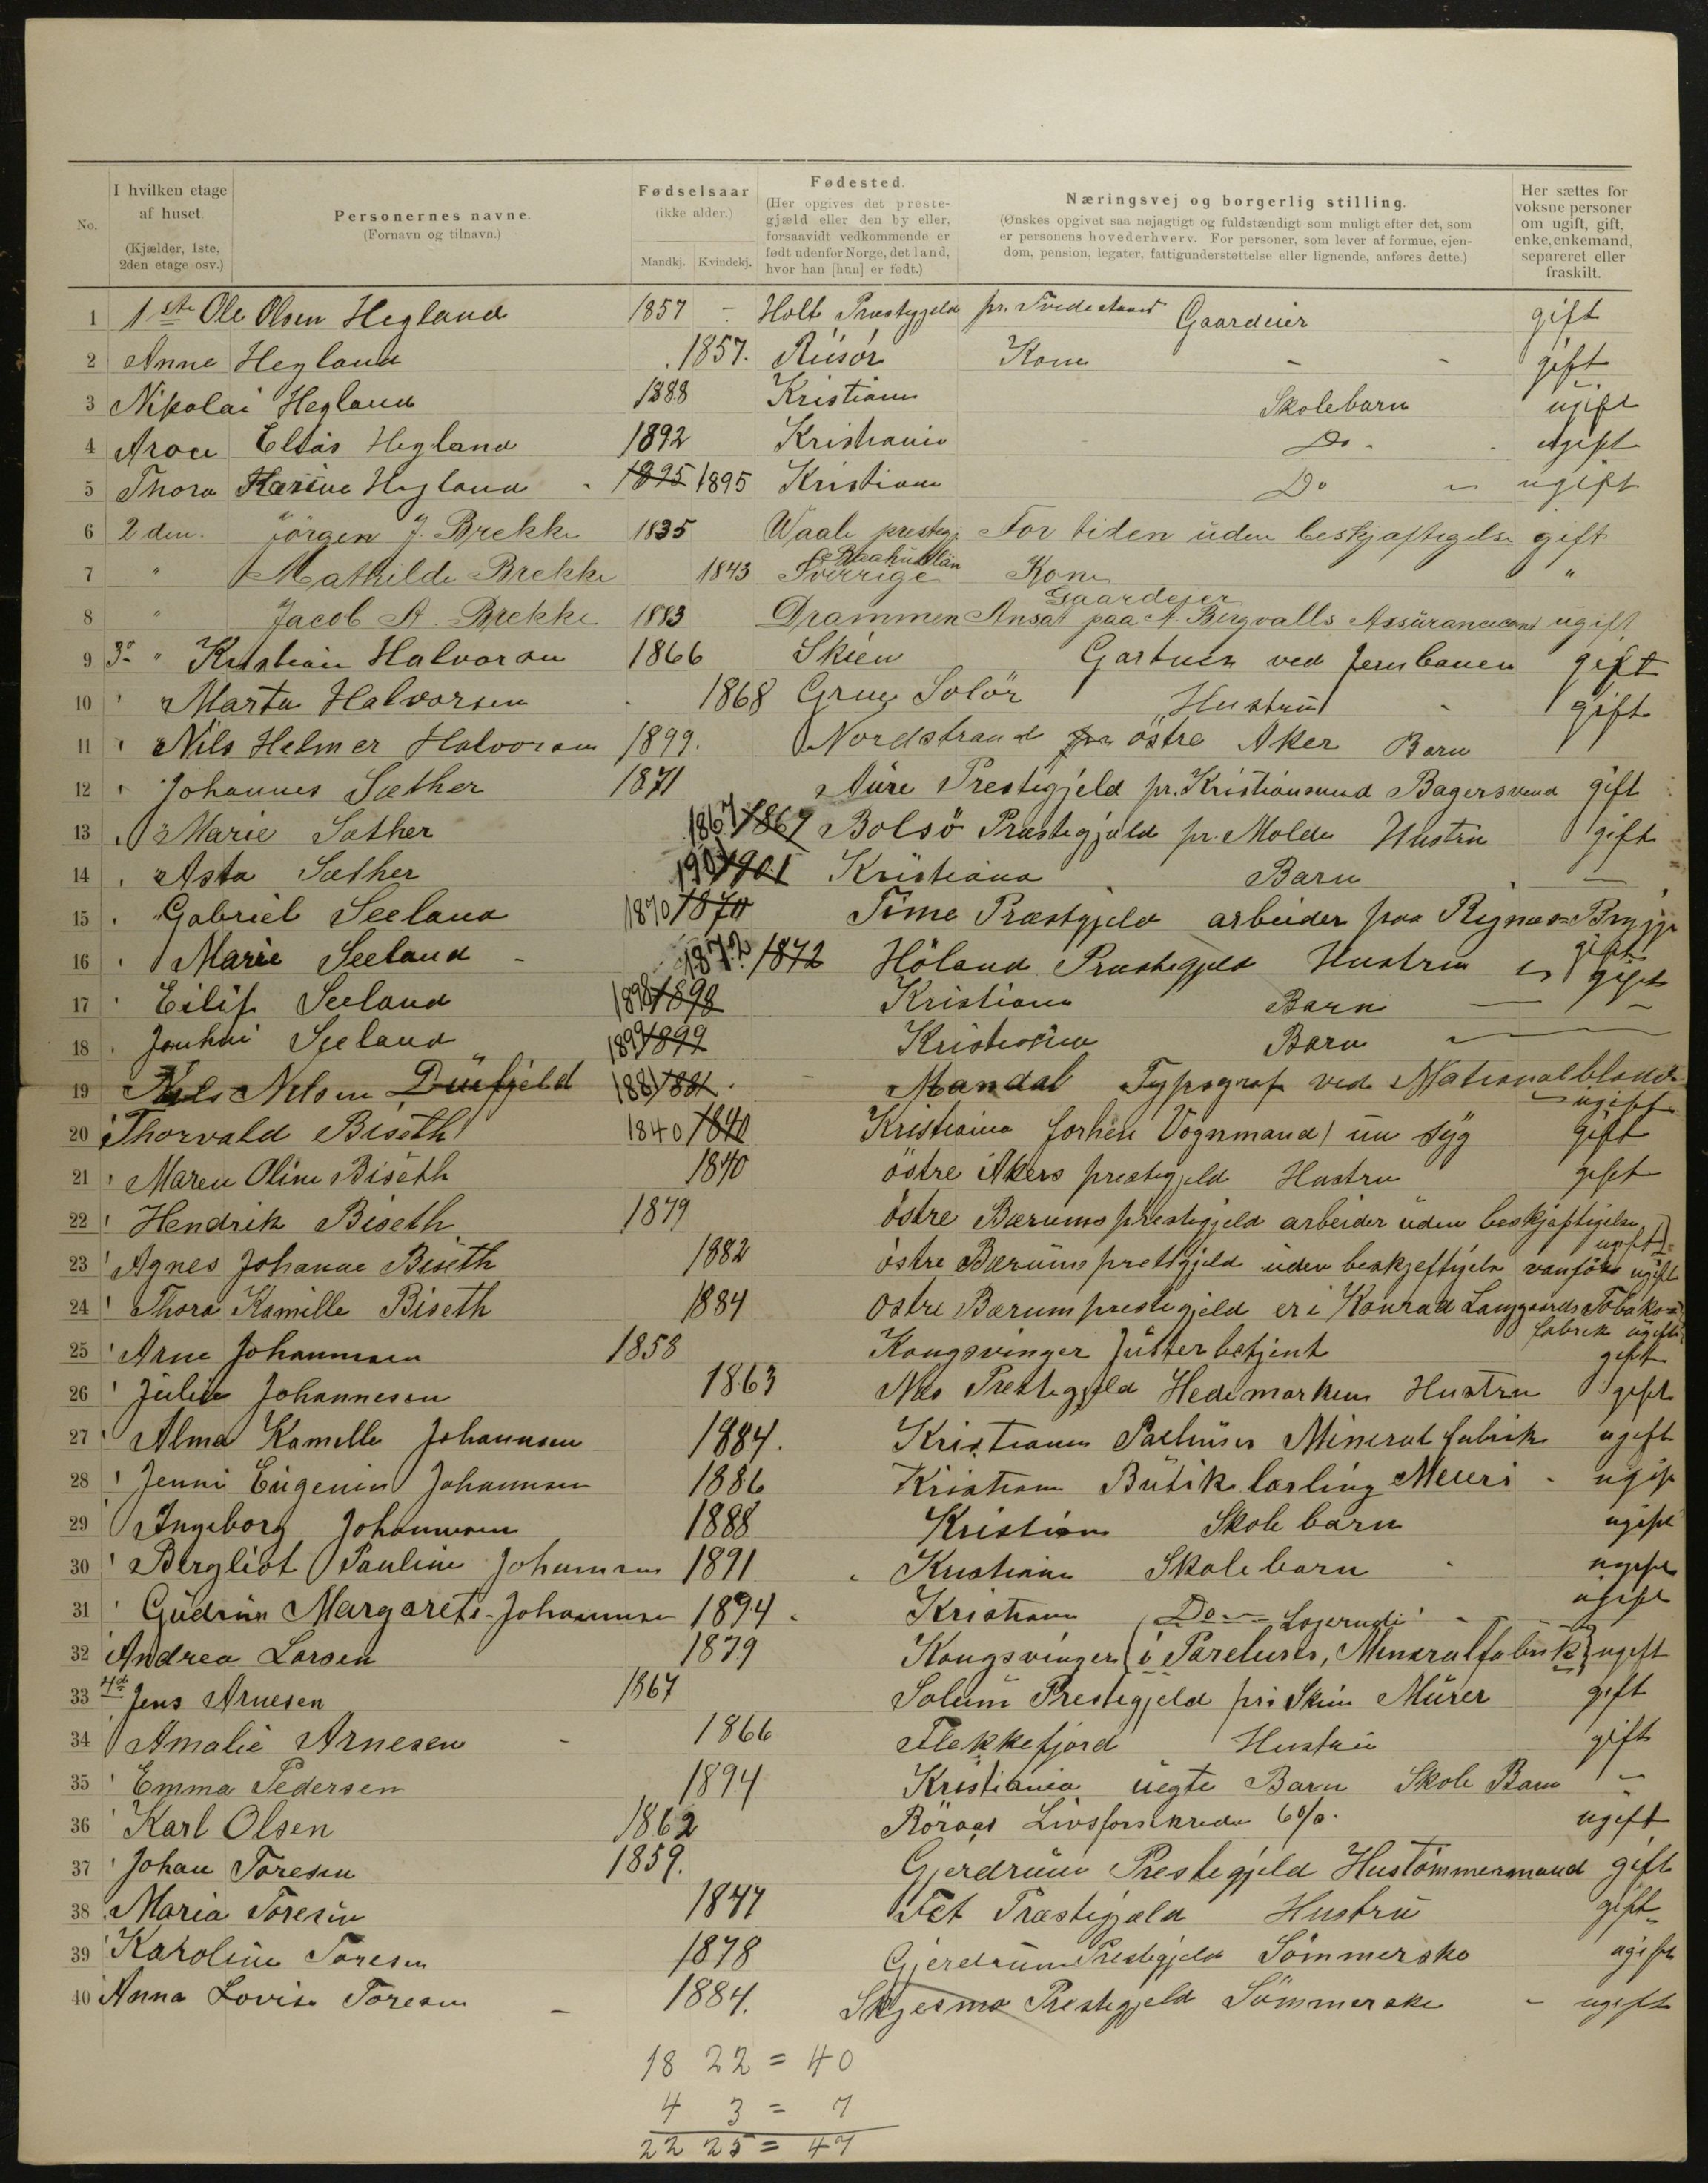 No.
I hvilken etage af huset.
(Kjælder, 1ste, 2den etage osv.)
Personernes navne.
(Fornavn og tilnavn.)
Fødselsaar
(ikke alder.)
Mandkj. Kvindekj.
Fødested.
(Her opgives det præstegjæld eller den by eller, forsaavidt vedkommende er født udenfor Norge, det land, hvor han [hun] er født.)
Næringsvej og borgerlig stilling.
(Ønskes opgivet saa nøjagtigt og fuldstændigt som muligt efter det, som er personens hovederhverv. For personer, som lever af formue, ejendom, pension, legater, fattigunderstøttelse eller lignende, anføres dette.)
Her sættes for voksne personer om ugift, gift, enke, enkemand, separeret eller fraskilt.
1 1ste Ole Olsen Hegland 1857 - Holt Præstgjeld pr. Tvedestrand Gaardeier gift
2 Anna Hegland 1857. Riisör Kone - - gift
3 Nikolai Hegland 1888 Kristiania Skolebarn ugift
4 Elias Hegland 1892 Kristiania Do - ugift
5 Thora Hegland 1895 1895 Kristiania Do ugift
6 2den. Jörgen J. Brekke 1835 Waale prestegj For tiden uden beskjæftigelse gift
7 " Mathilde Brekke 1843 Sverrige Kone "
8 " Jacob A. Brekke 1883 Drammen Gaardeier Ansat paa A. Bergvalls ugift
9 3d " Kristian Halvorsen 1866 Skien Gartner ved Jernbanen gift
10 Marta Halvorsen 1868 Grue Solör Hustru gift
11 Nils Helmer Halvorsen 1899. Nordstrand östre Aker Barn
12 Johannes Sæther 1871 Aure Prestegjeld pr. Kristiansund Bagersvend gift
13 Marie Sæther 1867 1867 Bolsö Præstegjæld pr. Molde Hustru gift
14 Asta Sæther 1901 1901 Kristiania Barn -
15 Gabriel Seeland 1870 1870 Time Præstgjeld arbeider paa Rignæs Bryggr
gift
16 Marie Seeland - 1872 1872 Höland Præstegjeld Hustru gift
17 Eilif Seeland 1898 1898 Kristiania Barn - -
18 Seeland 1899 1899 Kristiania Barn
19 Nils Nilsen Düefjeld 1881 1881 - Mandal Typograf ved Nationalbladet
ugift
20 Thorvald Biseth 1840 1840 Kristiania forhen Vognmand nu syg gift
21 Maren Oline Biseth 1840 östre Akers prestegjeld Hustru gift
22 Hendrik Biseth 1879 östre Bærums prestegjeld arbeider uden beskjæftigelse
ugift
23 Agnes Johanne Biseth 1882 östre Bærums prestgjeld uden beskjeftigelse vanför ugift
24 Thora Kamille Biseth 1884 östre Bærum prestegjeld er i Konrad Langgaards Tobaks-
fabrik ugift
25 Arne Johannesen 1858 Kongsvinger Justerbetjent gift
26 Julie Johannesen 1863 Næs Prestegjeld Hedemarken Hustru gift
27 Alma Kamille Johannesen 1884. Kristiania Mineral fabrik ugift
28 Jenni Eugenia Johannesen 1886 Kristiania Butik lærling Meieri - ugift
29 Ingeborg Johannesen 1888 Kristiania Skole barn ugift
30 Bergliot Pauline Johannesen 1891 Kristiania Skole barn ugift
31 Gudrun Margarete Johannesen 1894 Kristiania Do - ugift
Logerende
32 Andrea Larsen 1879 Kongsvinger i Mineralfabrik ugift
33 4de Jens Arnesen 1867 Solum Prestegjeld pr Skien Murer gift
34 Amalie Arnesen - 1866 Flekkefjord Hustru gift
35 Emma Pedersen 1894 Kristiania uegte Barn Skole Barn -
36 Karl Olsen 1862 Röraas ugift
37 Johan Toresen 1859. Gjerdrum Prestegjeld Hustömmermand gift
38 Maria Toresen 1847 Fet Præstegjæld Hustru gift
39 Karoline Toresen 1878 Gjerdrum Prestegjeld Sömmerske ugift
40 Anna Lovise Toresen - 1884. Skjesmo Prestegjeld Sömmerske - ugift
18 22 = 40
4 3 = 7
22 25 = 47